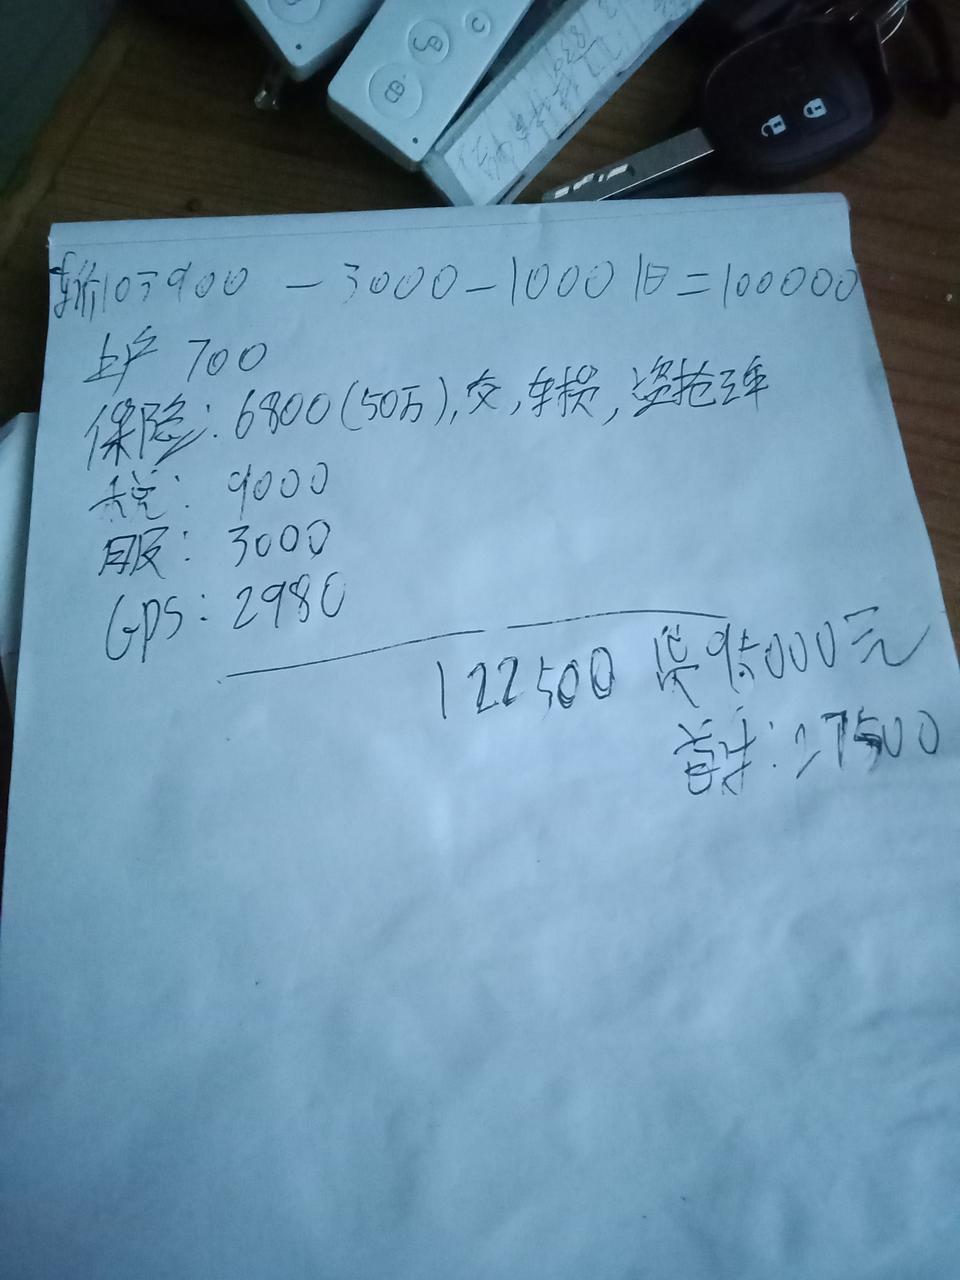 车价103900-3000-1000旧=100000
上户 700
保险:6800(50万),交,车损,盗抢三年
税:9000
服:3000
GPS:2980
122500 贷95000元
首付:27500